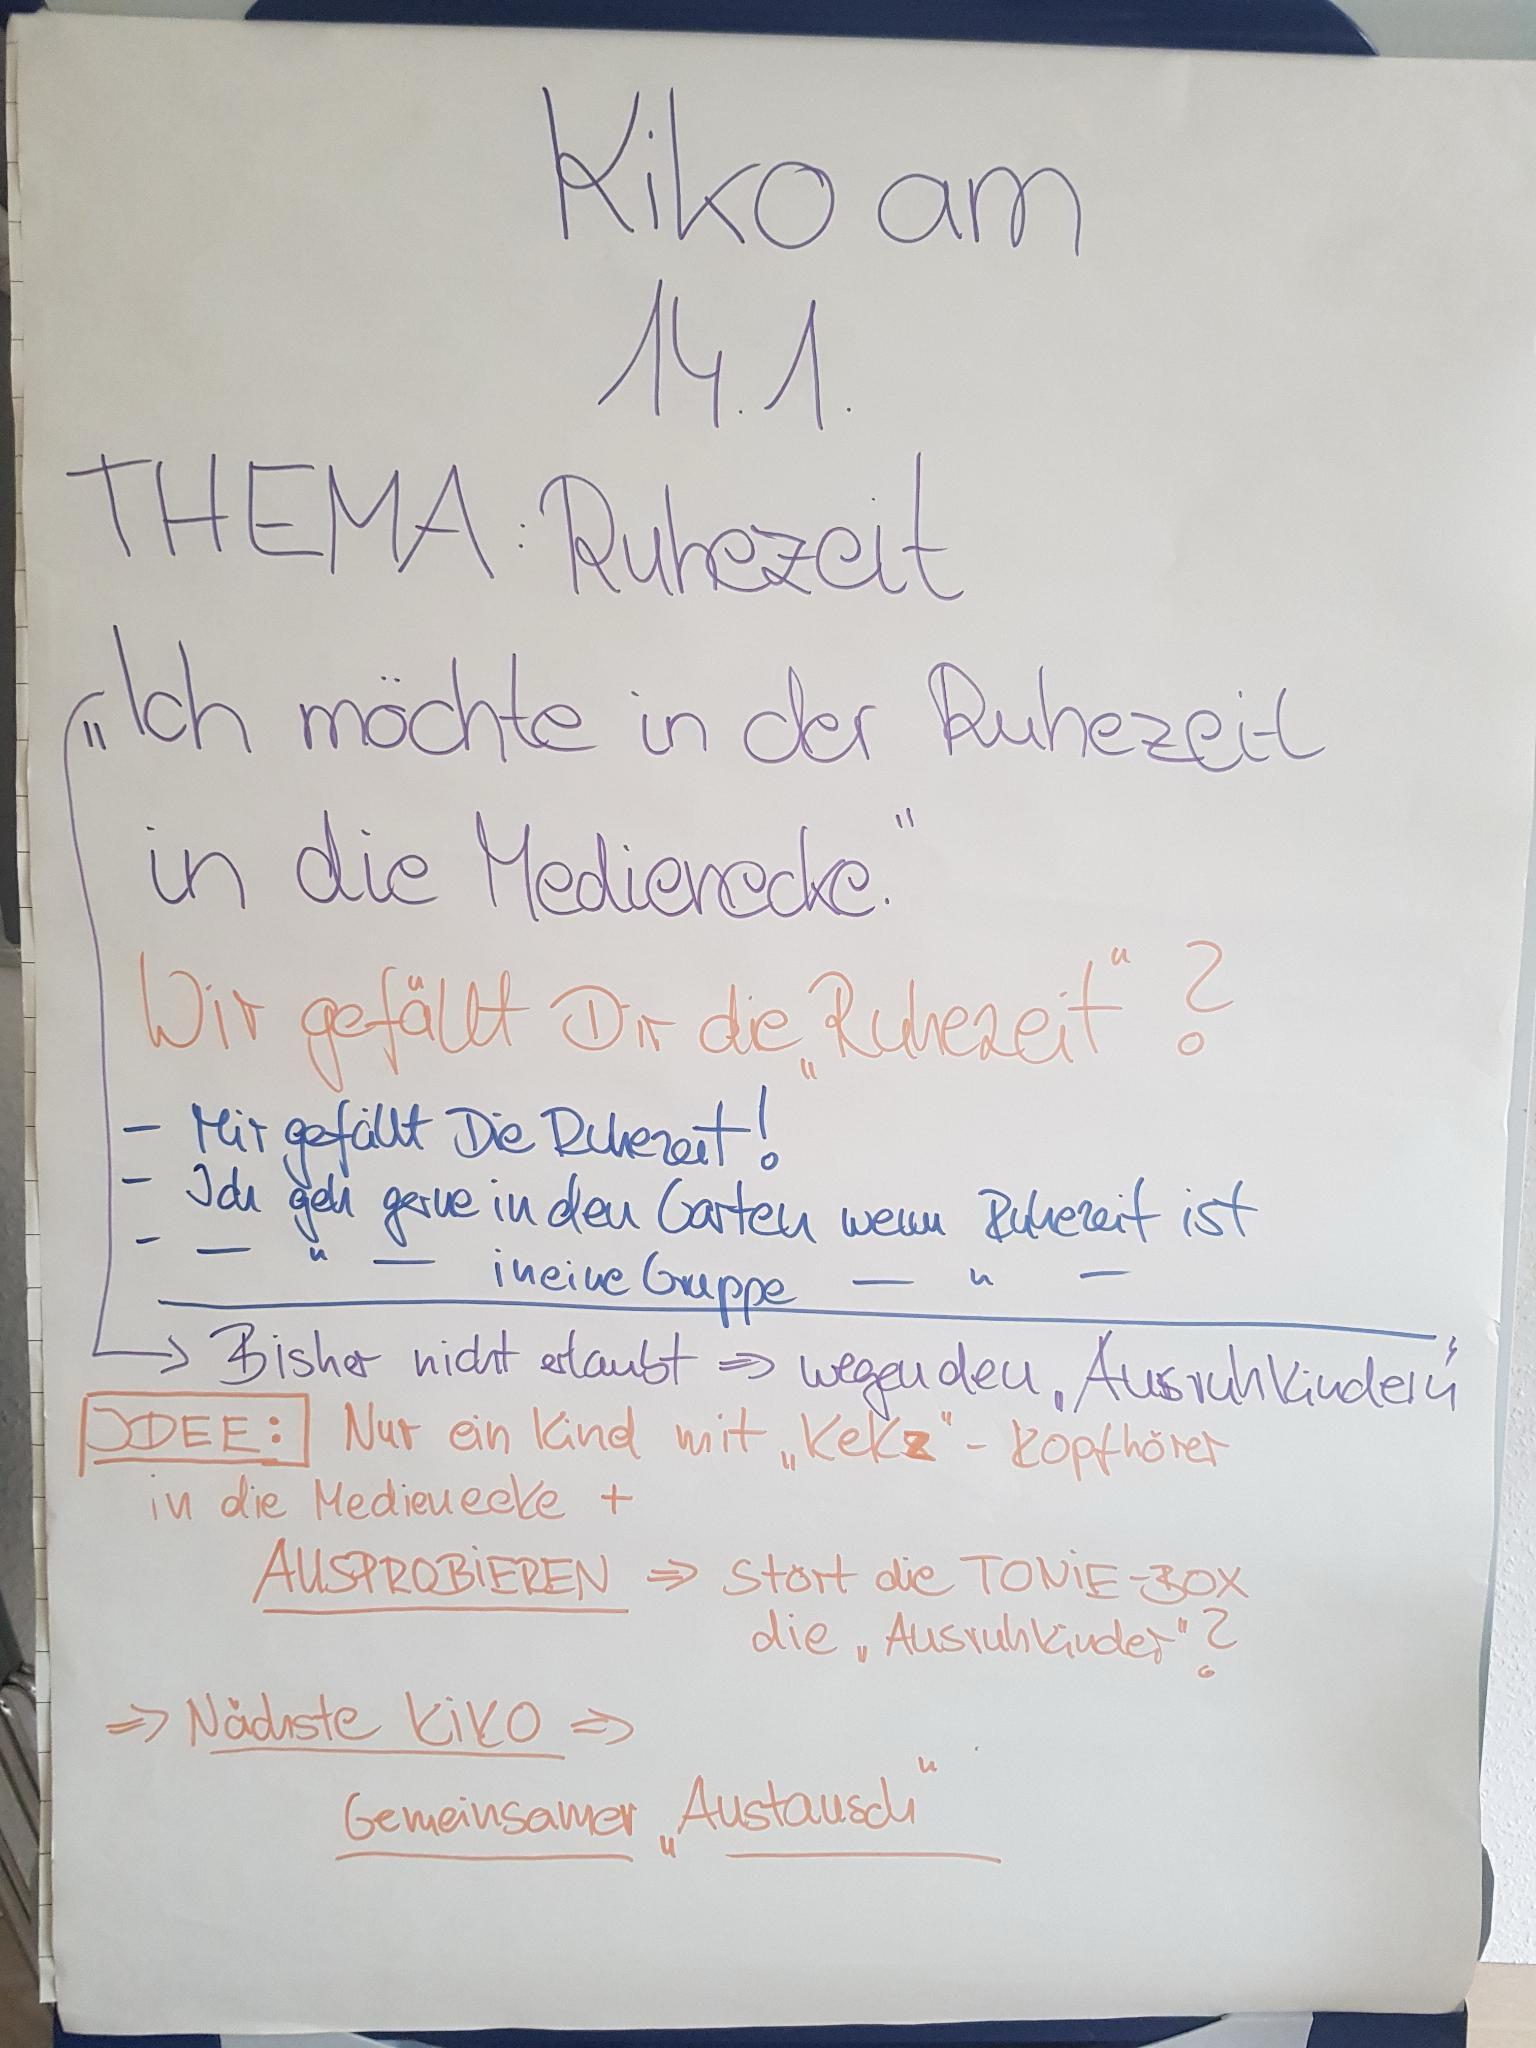 Kiko am
14.1.
THEMA: Ruhezeit
„Ich möchte in der Ruhezeit
in die Medienecke."
Wir gefällt Dir die „Ruhezeit" ?
- Mir gefällt Die Ruhezeit!
- Ich geh gerne in den Garten wenn Ruhezeit ist
- — " — in eine Gruppe — " —
→ Bisher nicht erlaubt ⇒ wegen den „Ausruhkindern"
IDEE: Nur ein Kind mit „Kekz"-Kopfhörer
in die Medienecke +
AUSPROBIEREN ⇒ Stört die TONIE-BOX
die „Ausruhkinder"?
⇒ Nächste KiKO ⇒
Gemeinsamer „Austausch"